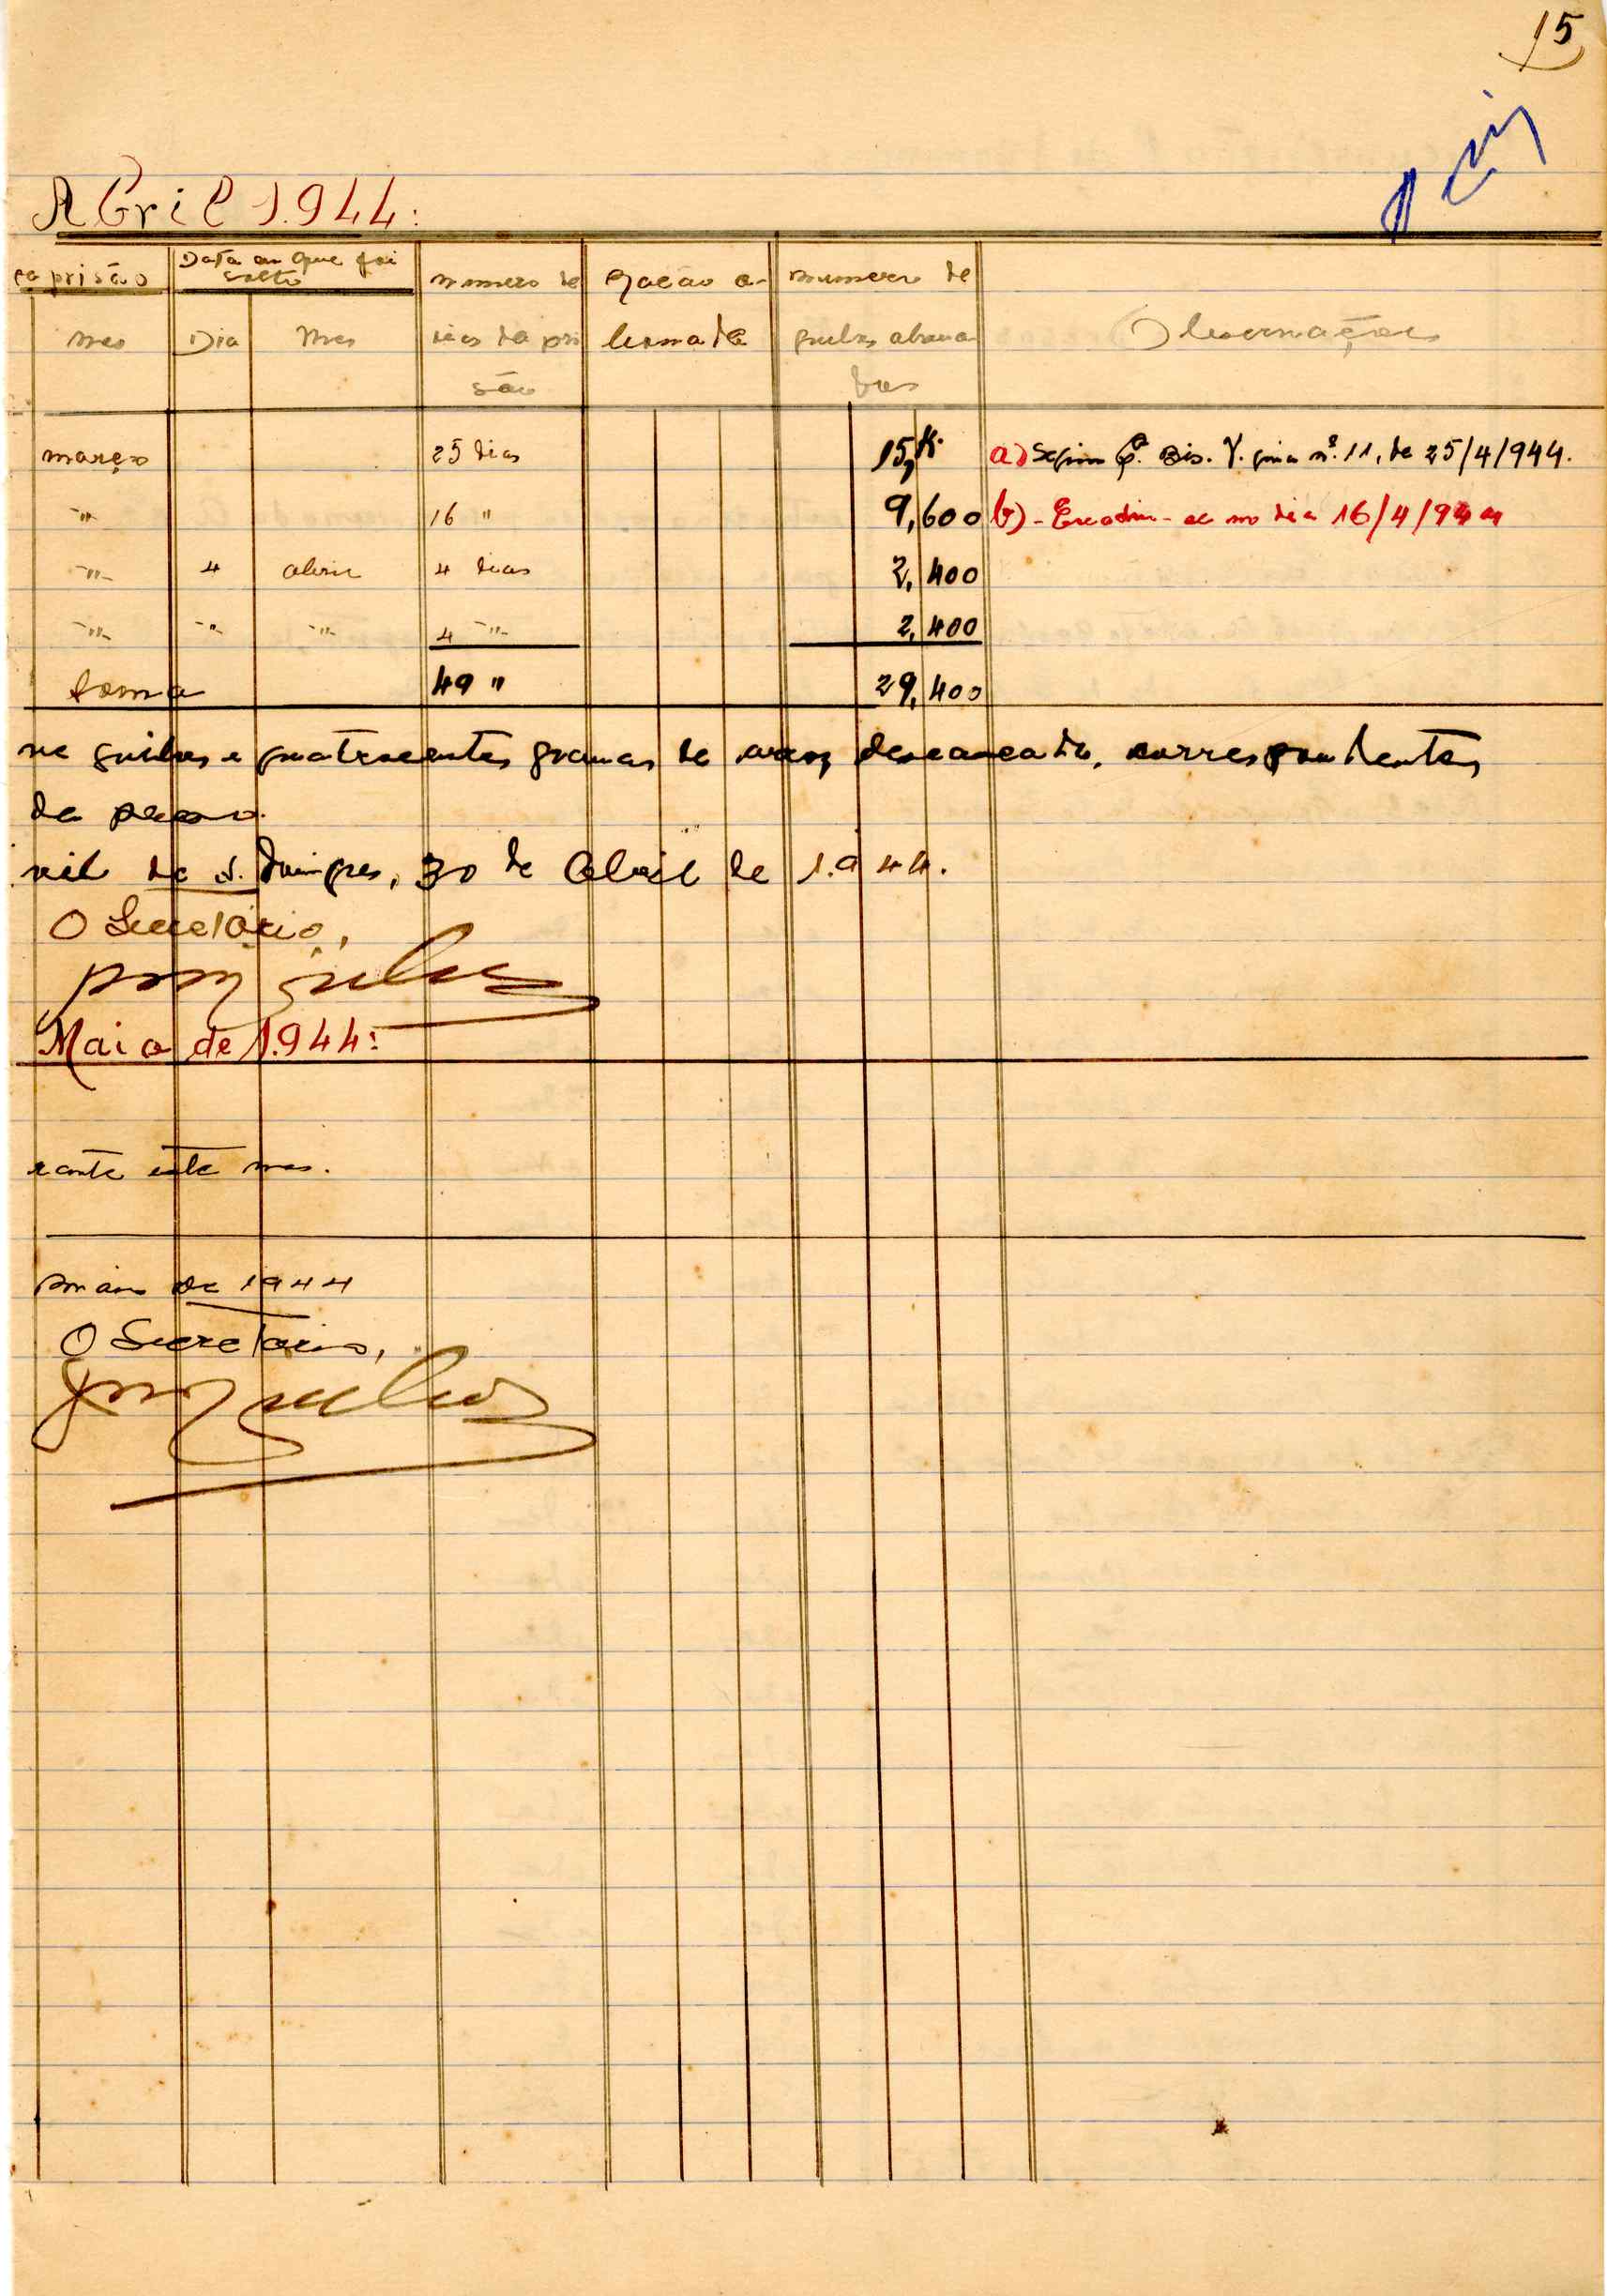 15
Abril 1.944:
da prisão
Data em que foi solto
numero de dias da prisão
Ração abonada
numero de quilos abonados
Observações
mes
Dia
Mes
março 25 dias 15,K. a) Seguiu Bis. guia nº 11, de 25/4/944.
-"- 16 " 9,600 b)- Evadiu-se no dia 16/4/944
-"- 4 abril 4 dias 2,400
-"- -"- -"- 4 -"- 2,400
Soma 49 " 29,400
ve quilos e quatrocentos gramas de arroz descascado, correspondentes
da preso.
vil de S. Domingos, 30 de Abril de 1.944.
O Secretário,
Maio de 1.944:
rante este mes.
maio de 1944
O Secretario,